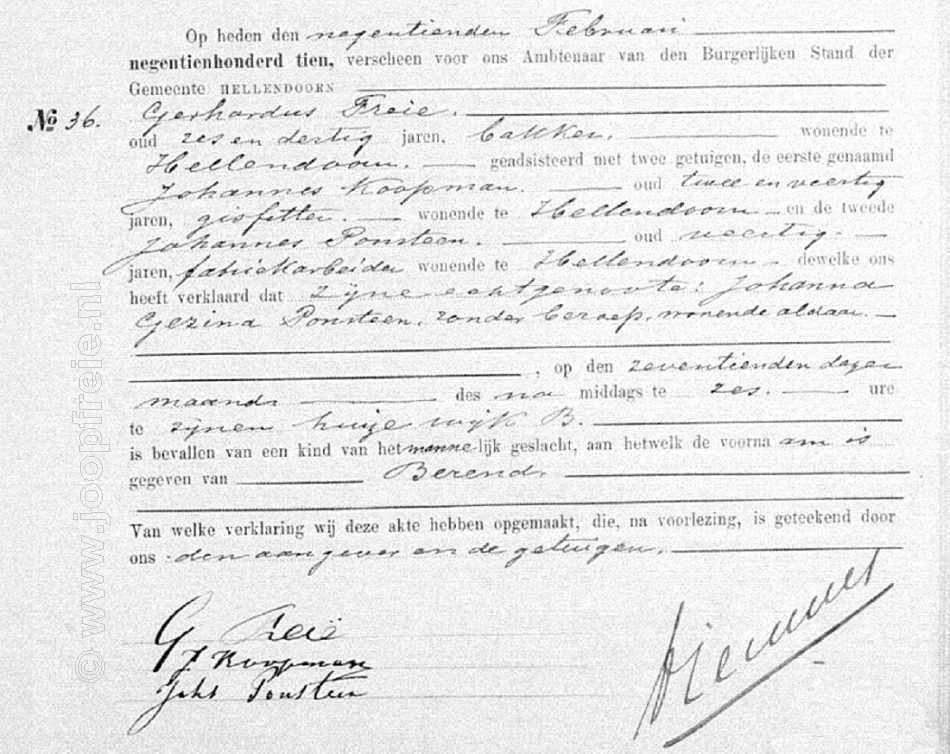 Op heden den negentienden Februari
negentienhonderd tien, verscheen voor ons Ambtenaar van den Burgerlijken Stand der
Gemeente HELLENDOORN
№ 36. Gerhardus Freie.
oud zes en dertig jaren, bakker. wonende te
Hellendoorn. geadsisteerd met twee getuigen, de eerste genaamd
Johannes Koopman. oud twee en veertig
jaren, gisfitter. wonende te Hellendoorn en de tweede
Johannes Ponsteen. oud veertig.
jaren, fabriekarbeider wonende te Hellendoorn dewelke ons
heeft verklaard dat zijne echtgenoote: Johanna
Gezina Ponsteen, zonder beroep, wonende aldaar.
, op den zeventienden dezer
maand. des na middags te zes. ure
te zijnen huize wijk B.
is bevallen van een kind van het mannelijk geslacht, aan hetwelk de voorna am is
gegeven van Berend.
Van welke verklaring wij deze akte hebben opgemaakt, die, na voorlezing, is geteekend door
ons den aangever en de getuigen.
G Freie
J Koopman
Johs Ponsteen
© www.joopfreie.nl